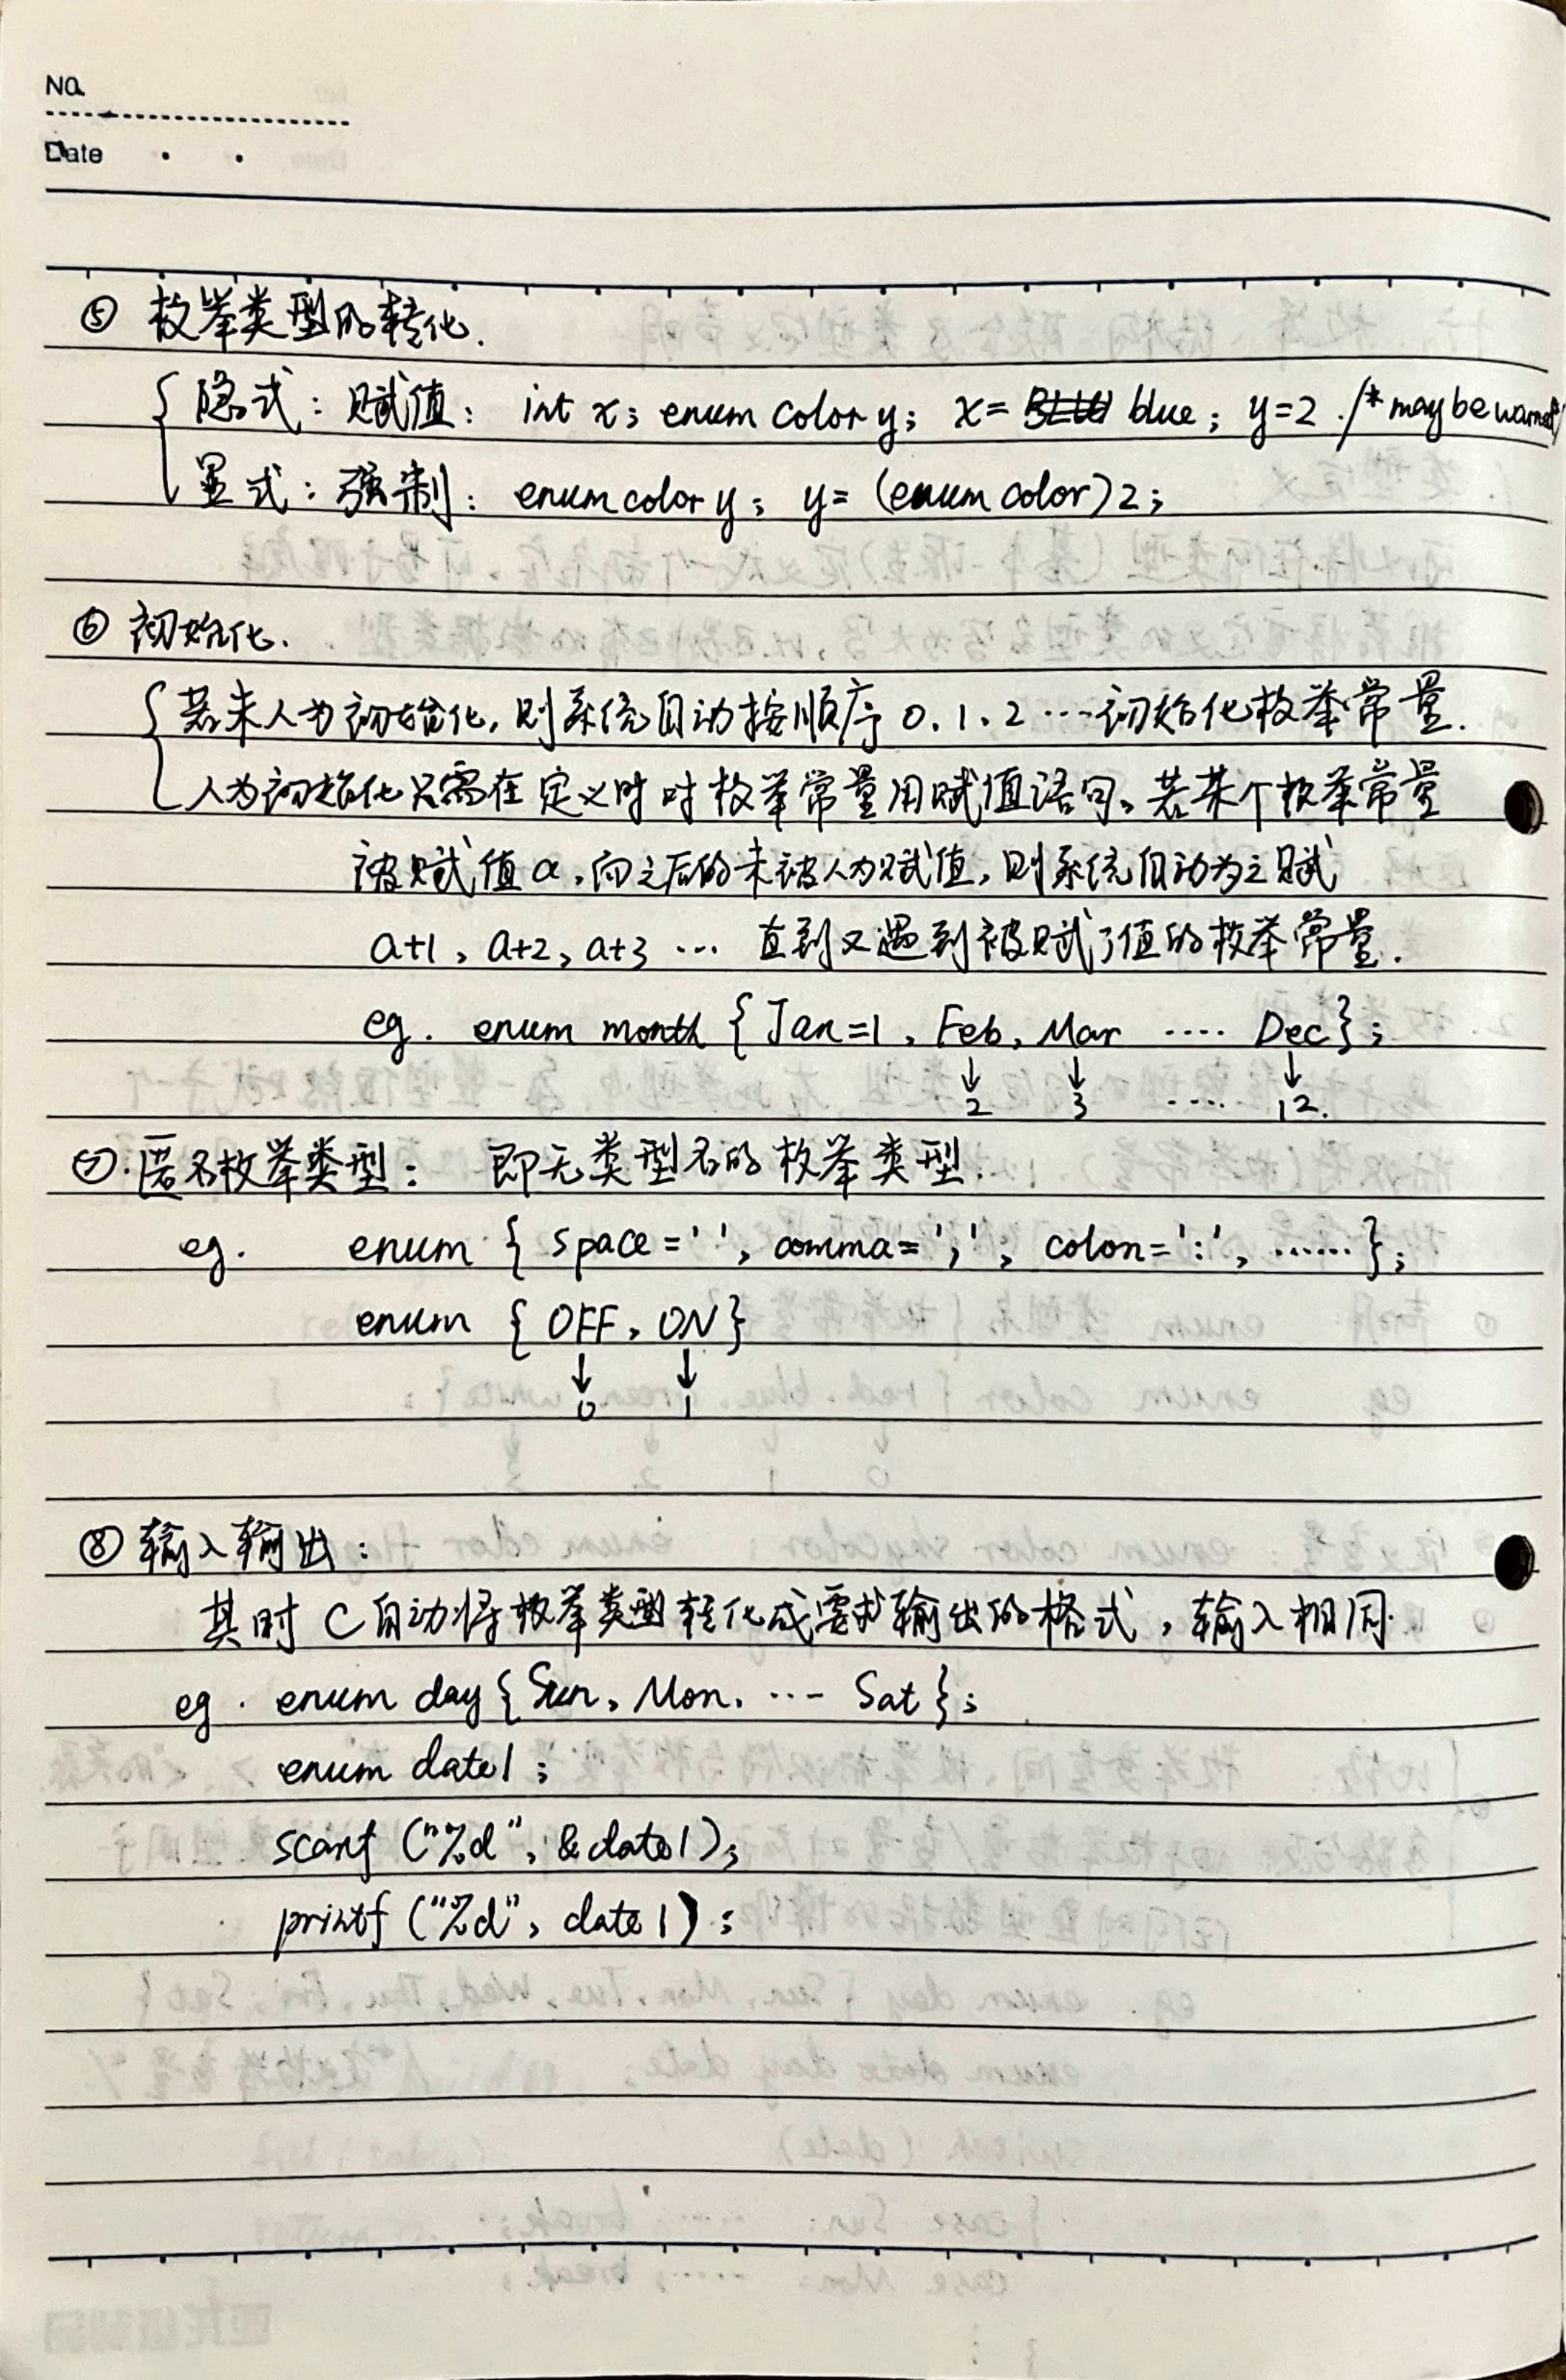 No.
Date
⑤ 枚举类型的转化.
隐式：赋值： int x; enum color y; x= blue; y=2. /* may be warned */
显式：强制： enum color y; y= (enum color)2;
⑥ 初始化.
若未人为初始化，则系统自动按顺序 0、1、2 …初始化枚举常量.
人为初始化只需在定义时对枚举常量用赋值语句。若某个枚举常量
被赋值 a，向之后的未被人为赋值，则系统自动为之赋
a+1、a+2、a+3 … 直到又遇到被赋了值的枚举常量.
eg. enum month {Jan=1, Feb, Mar .... Dec};
↓ ↓ ↓
2 3 ..... 12.
⑦.匿名枚举类型： 即无类型名的枚举类型.
eg. enum { space=' ', comma=',', colon=':', ......};
enum { OFF, ON}
↓ ↓
0 1
⑧ 输入输出：
其时 C自动将枚举类型转化成要求输出的格式，输入相同.
eg. enum day{Sun, Mon, ... Sat};
enum date1;
scanf ("%d", &date1);
printf ("%d", date1);